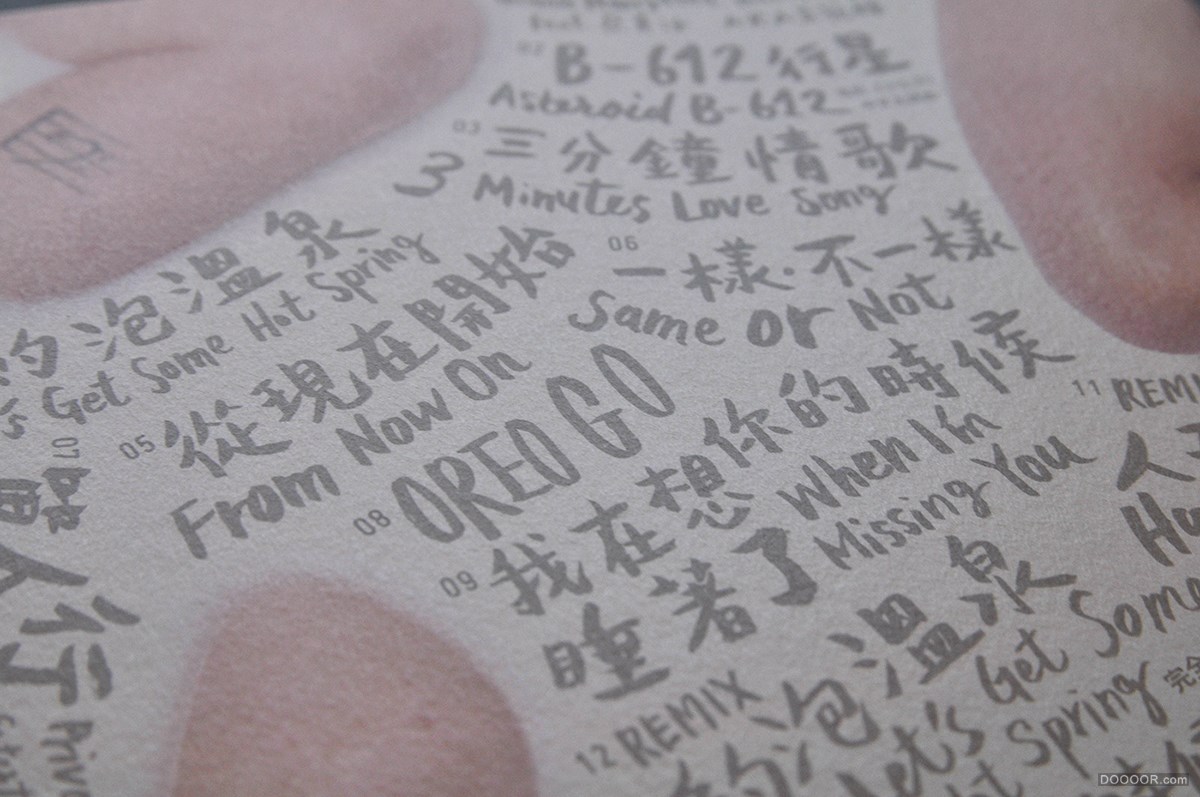 02
B-612行星
Asteroid B-612
03
三分鐘情歌
3 Minutes Love Song
的泡溫泉
Get Some Hot Spring
05
從現在開始
From Now On
06
一樣·不一樣
Same or Not
07
08
OREO GO
09
我在想你的時候
睡著了
When I'm
Missing You
11 REMI
人
12 REMIX
的泡溫泉
Let's Get Some
Spring
人行
DOOOOR.com